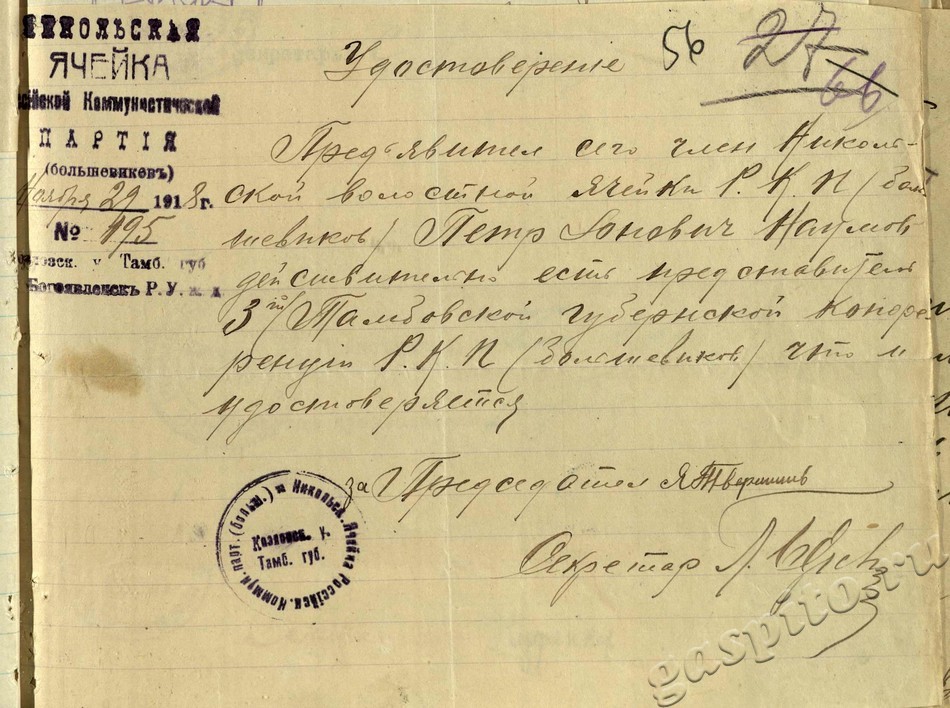 НИКОЛЬСКАЯ
ЯЧЕЙКА
сійской Коммунистической
ПАРТІЯ
(большевиковъ)
Ноября 29 1918 г.
№ 195
Козловск. у Тамб. губ
Богоявленскъ Р. У. ж. д.
56
27
66
Удостоверение
Предъявител сего член Николь-
ской волостной ячейки Р.К.П (боль
шевиков) Петр Іонович Наумов
действительно есть представитель
3й Тамбовской губернской конфе
ренціи Р.К.П (большевиков) что и
удостоверяется
за Председател
Секретар
Никольск. Ячейка Россійск. Коммун. парт. (больш.)
Козловск. у.
Тамб. губ.
gaspito.ru